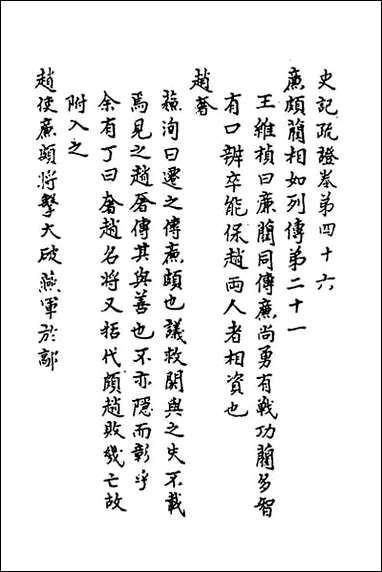 史記疏證卷第四十六
廉頗藺相如列傳第二十一
王維楨曰廉藺同傳廉尚勇有戰功藺多智
有口辨卒能保趙兩人者相資也
趙奢
蘓洵曰遷之傳廉頗也議救閼與之失不載
焉見之趙奢傳其與善也不亦隱而彰乎
余有丁曰奢趙名將又括代頗趙敗幾亡故
附入之
趙使廉頗將擊大破燕軍於鄗